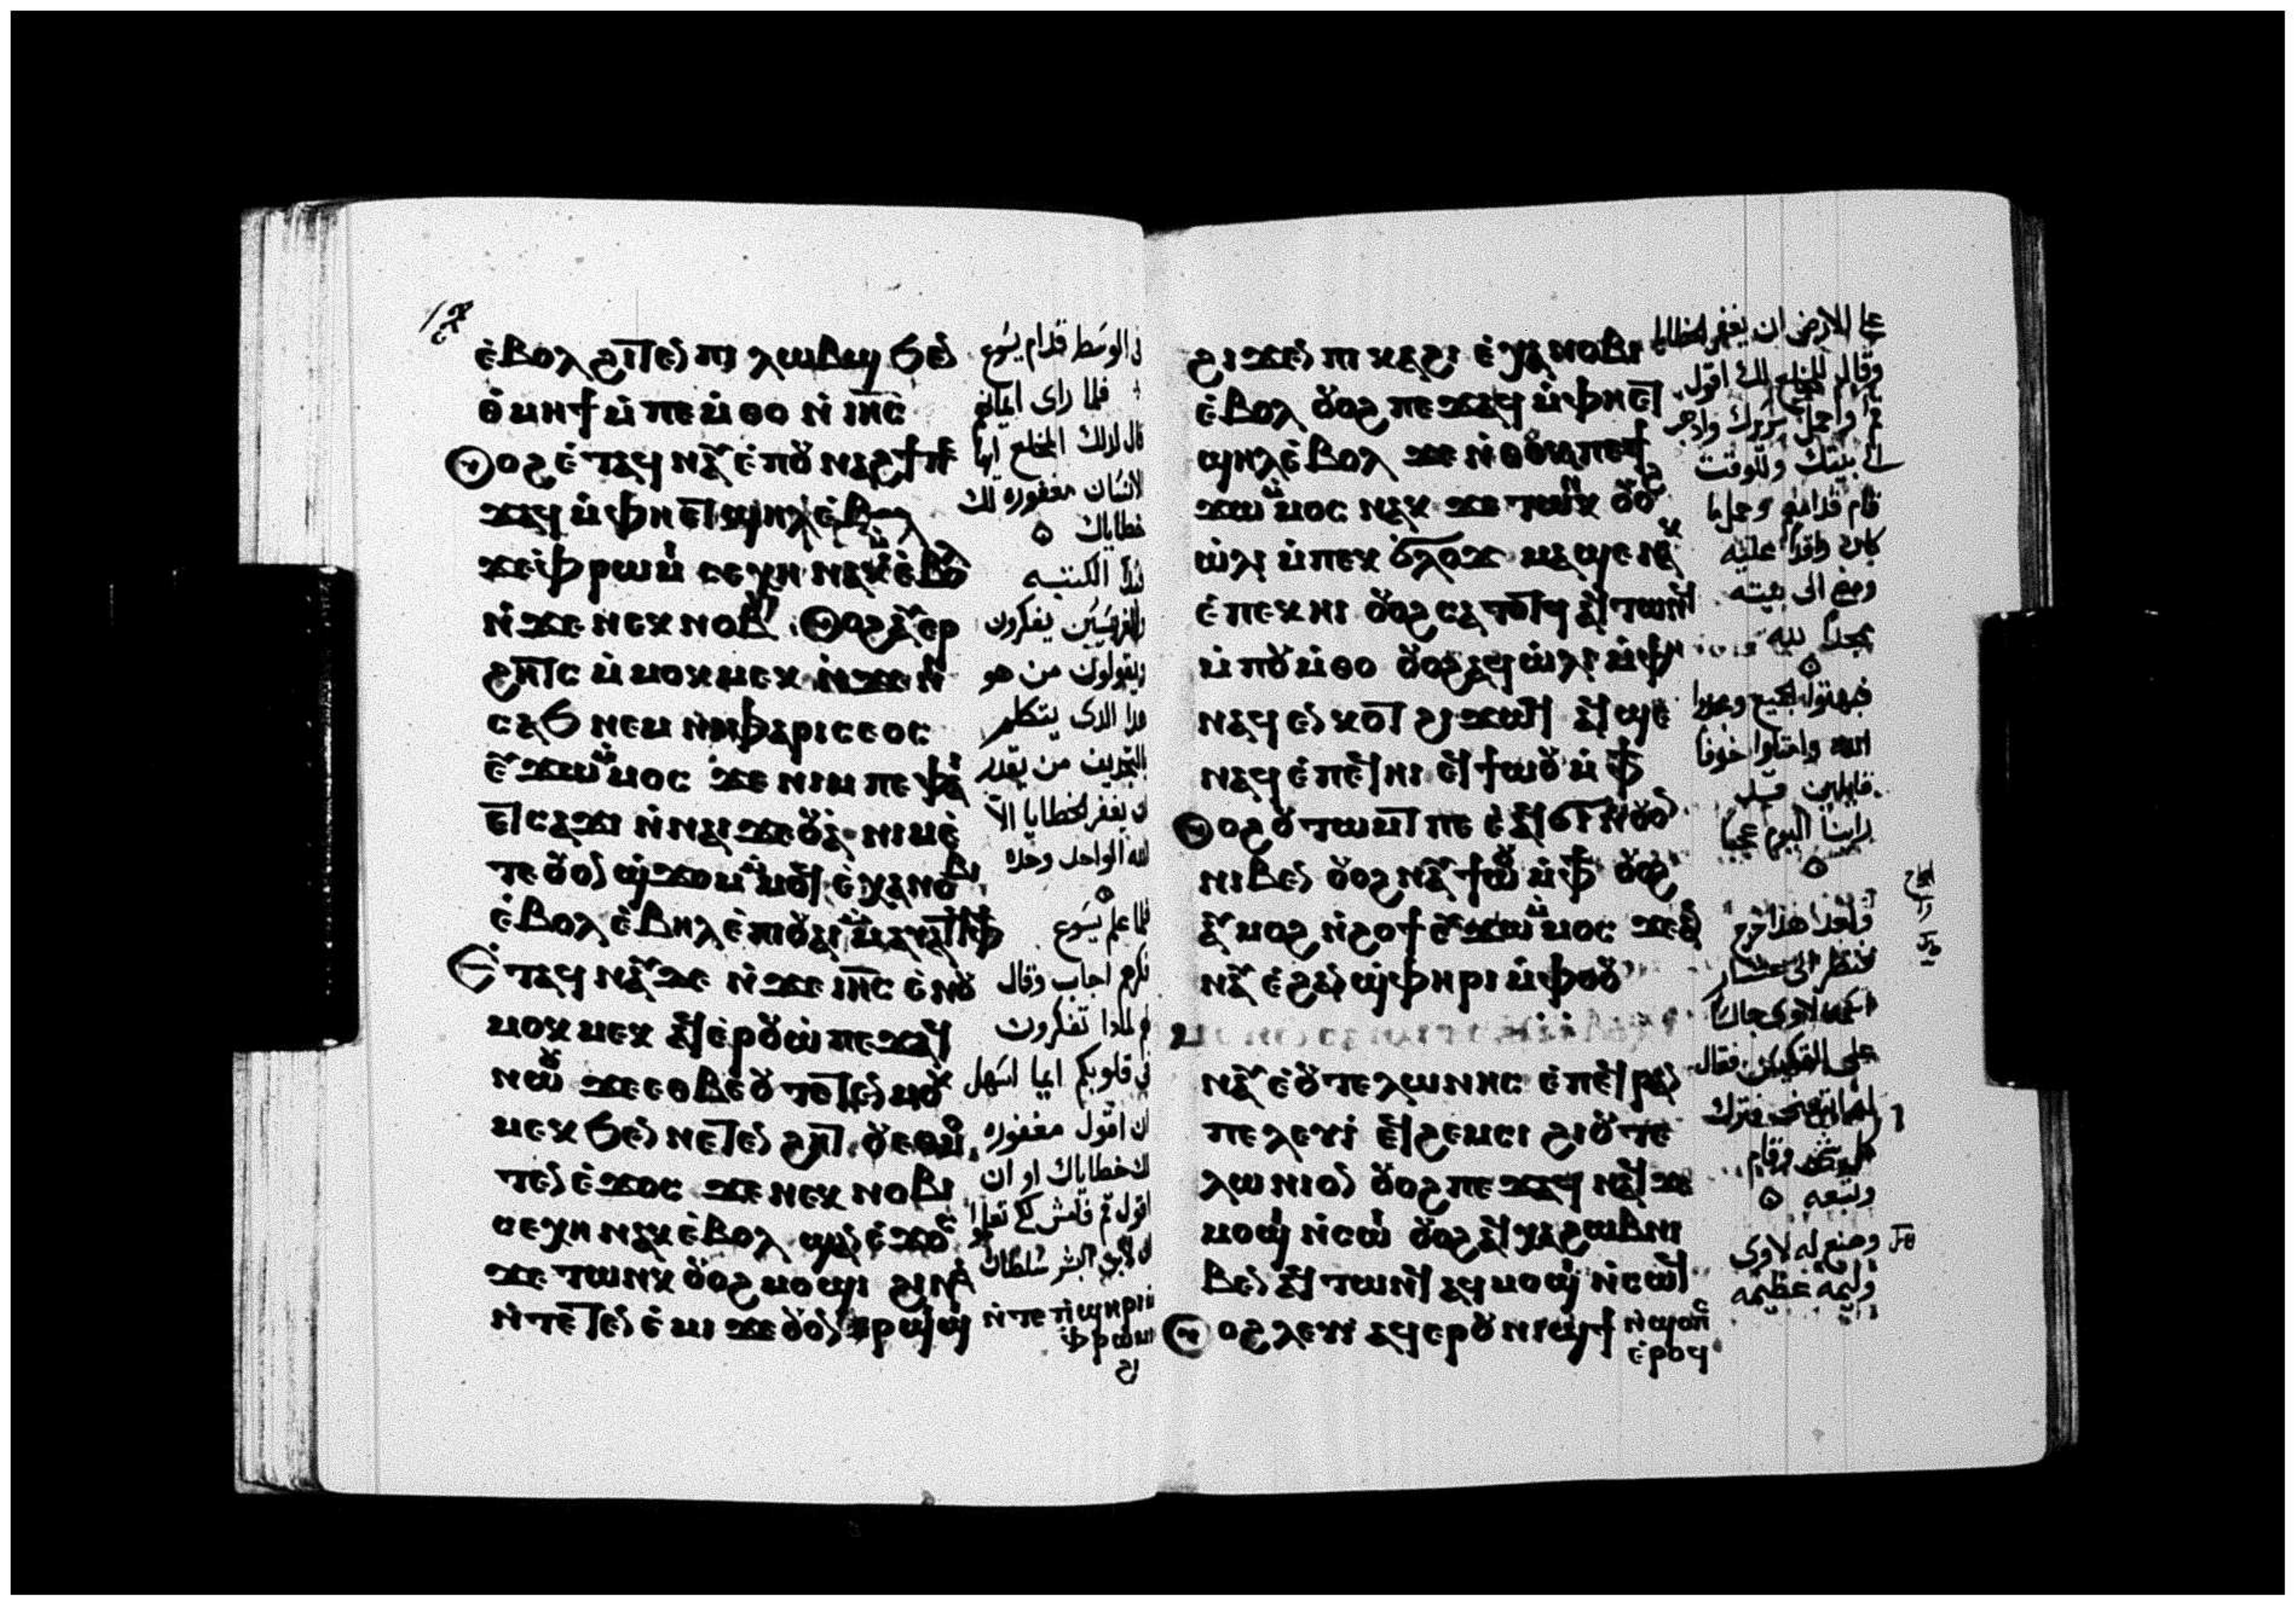 ⲉⲃⲟⲗ ϩⲓⲧⲉⲛ ⲡⲓ ⲗⲱⲃϣ ϧⲉⲛ
ⲑⲙⲏϯ ⲙⲡⲉⲙⲑⲟ ⲛⲓⲏⲥ
ⲟⲩⲟϩ ⲉⲧⲁϥⲛⲁⲩ ⲉⲡⲟⲩⲛⲁϩϯ ⲡⲉ
ϫⲁϥ ⲙⲫⲏⲉⲧϣⲏⲗ ⲉⲃⲟⲗ
ϫⲉ ⲫⲣⲱⲙⲓ ⲥⲉⲭⲏ ⲛⲁⲕ ⲉⲃⲟⲗ
ⲛϫⲉ ⲛⲉⲕⲛⲟⲃⲓ ⲟⲩⲟϩ ⲁⲩⲉⲣ
ϩⲏⲧⲥ ⲙⲙⲟⲕⲙⲉⲕ ⲛϫⲉ ⲛⲓ
ⲥⲁϧ ⲛⲉⲙ ⲛⲓⲫⲁⲣⲓⲥⲉⲟⲥ
ⲉⲩϫⲱ ⲙⲙⲟⲥ ϫⲉ ⲛⲓⲙ ⲡⲉ ⲫⲁⲓ
ⲉⲧⲥⲁϫⲓ ⲛⲛⲁⲓϫⲉⲟⲩⲁ ⲛⲓⲙ ⲉ
ⲧⲉ ⲟⲩⲟⲛ ϣϫⲟⲙ ⲙⲙⲟϥ ⲉⲭⲁ ⲛⲟⲃⲓ
ⲉⲃⲟⲗ ⲉⲃⲏⲗ ⲉⲡⲓⲟⲩⲁⲓ ⲙⲙⲁⲩⲁⲧϥ ⲫϯ
ⲉⲧⲁϥⲛⲁⲩ ⲇⲉ ⲛϫⲉ ⲓⲏⲥ ⲉⲛⲟⲩ
ⲙⲟⲕⲙⲉⲕ ⲁϥⲉⲣⲟⲩⲱ ⲡⲉϫⲁϥ
ⲛⲱⲟⲩ ϫⲉ ⲉⲑⲃⲉⲟⲩ ⲧⲉⲧⲉⲛⲙⲟⲕ
ⲙⲉⲕ ϧⲉⲛ ⲛⲉⲧⲉⲛϩⲏⲧ ⲟⲩ ⲉⲑⲙⲟ
ⲧⲉⲛ ⲉϫⲟⲥ ϫⲉ ⲛⲉⲕⲛⲟⲃⲓ
ⲥⲉⲭⲏ ⲛⲁⲕ ⲉⲃⲟⲗ ϣⲁⲛ ⲉϫⲟⲥ
ϫⲉ ⲧⲱⲛⲕ ⲟⲩⲟϩ ⲙⲟϣⲓ ϩⲓⲛⲁ
ⲛⲧⲉⲧⲉⲛⲉⲙⲓ ϫⲉ ⲟⲩⲟⲛ ⲉⲣϣⲓϣⲓ ⲛⲧⲉ ⲡϣⲏⲣⲓ ⲙ
ⲫⲣⲱⲙⲓ
في الوسط قدام يسوع
فلما راى ايمانهم
قال لذلك المخلع ايها
الانسان مغفوره لك
خطاياك
فبدا الكتبه
والفريسيين يفكرون
ويقولون من هو
هذا الذى يتكلم
بالتجديف من يقدر
ان يغفر الخطايا الا
الله الواحد وحده
فلما علم يسوع
فكرهم اجاب وقال
لهم لماذا تفكرون
في قلوبكم ايما اسهل
ان اقول مغفوره
لك خطاياك او ان
اقول قم فامش لكى تعلموا
ان لابن البشر سلطان
ϩⲓϫⲉⲛ ⲡⲓⲕⲁϩⲓ ⲉⲭⲁ ⲛⲟⲃⲓ
ⲉⲃⲟⲗ ⲟⲩⲟϩ ⲡⲉϫⲁϥ ⲙⲫⲏⲉⲧ
ϣⲏⲗ ⲉⲃⲟⲗ ϫⲉ ⲛⲑⲟⲕ ⲡⲉϯ
ϫⲱ ⲙⲙⲟⲥ ⲛⲁⲕ ϫⲉ ⲧⲱⲛⲕ ⲟⲩⲟϩ
ⲱⲗⲓ ⲙⲡⲉⲕϭⲗⲟϫ ⲙⲁϣⲉⲛⲁⲕ
ⲉⲡⲉⲕⲏⲓ ⲟⲩⲟϩ ⲥⲁⲧⲟⲧϥ ⲁϥⲧⲱⲛϥ
ⲙⲡⲟⲩⲙⲑⲟ ⲟⲩⲟϩ ⲁϥⲱⲗⲓ ⲙⲫⲏ
ⲛⲁϥⲉⲛⲕⲟⲧ ϩⲓϫⲱϥ ⲁϥϣⲉ
ⲛⲁϥ ⲉⲡⲉϥⲏⲓ ⲉϥϯⲱⲟⲩ ⲙⲫϯ
ⲟⲩⲟϩ ⲟⲩⲧⲱⲙⲧ ⲡⲉ ⲉⲧⲁϥϭⲓ ⲛⲟⲩⲟⲛ
ⲛⲓⲃⲉⲛ ⲟⲩⲟϩ ⲛⲁⲩϯⲱⲟⲩ ⲙⲫϯ ⲟⲩⲟϩ
ⲁⲩⲙⲟϩ ⲛϩⲟϯ ⲉⲩϫⲱ ⲙⲙⲟⲥ ϫⲉ ⲁⲛ
ⲛⲁⲩ ⲉϩⲁⲛϣⲫⲏⲣⲓ ⲙⲫⲟⲟⲩ
ⲛⲁⲩ ⲉⲟⲩⲧⲉⲗⲱⲛⲏⲥ ⲉⲡⲉϥⲣⲁⲛ
ⲡⲉ ⲗⲉⲩⲓ ⲉϥϩⲉⲙⲥⲓ ϩⲓ ⲟⲩⲧⲉ
ⲗⲱⲛⲓⲟⲛ ⲟⲩⲟϩ ⲡⲉϫⲁϥ ⲛⲁϥ ϫⲉ
ⲙⲟϣⲓ ⲛⲥⲱⲓ ⲟⲩⲟϩ ⲁϥⲭⲁ ϩⲱⲃ ⲛⲓ
ⲃⲉⲛ ⲁϥⲧⲱⲛϥ ⲁϥⲙⲟϣⲓ ⲛⲥⲱϥ
ⲟⲩⲟϩ ⲗⲉⲩⲓ ⲁϥⲉⲣ ⲟⲩⲛⲓϣϯ ⲛϣⲟⲡⲥ
ⲉⲣⲟϥ
على الارض ان يغفر الخطايا
وقال للمخلع لك اقول
قم واحمل سريرك واذهب
الى بيتك وللوقت
قام قدامهم وحمل ما
كان راقدا عليه
ومضى الى بيته
يمجد الله
فبهتوا الجميع ومجدوا
الله وامتلوا خوفا
قايلين قد
راينا اليوم عجبا
وبعد هذا خرج
فنظر الى عشار
اسمه لاوى جالسا
على المكس فقال
له اتبعنى فترك
كل شى وقام
وتبعه
وصنع له لاوى
وليمه عظيمه